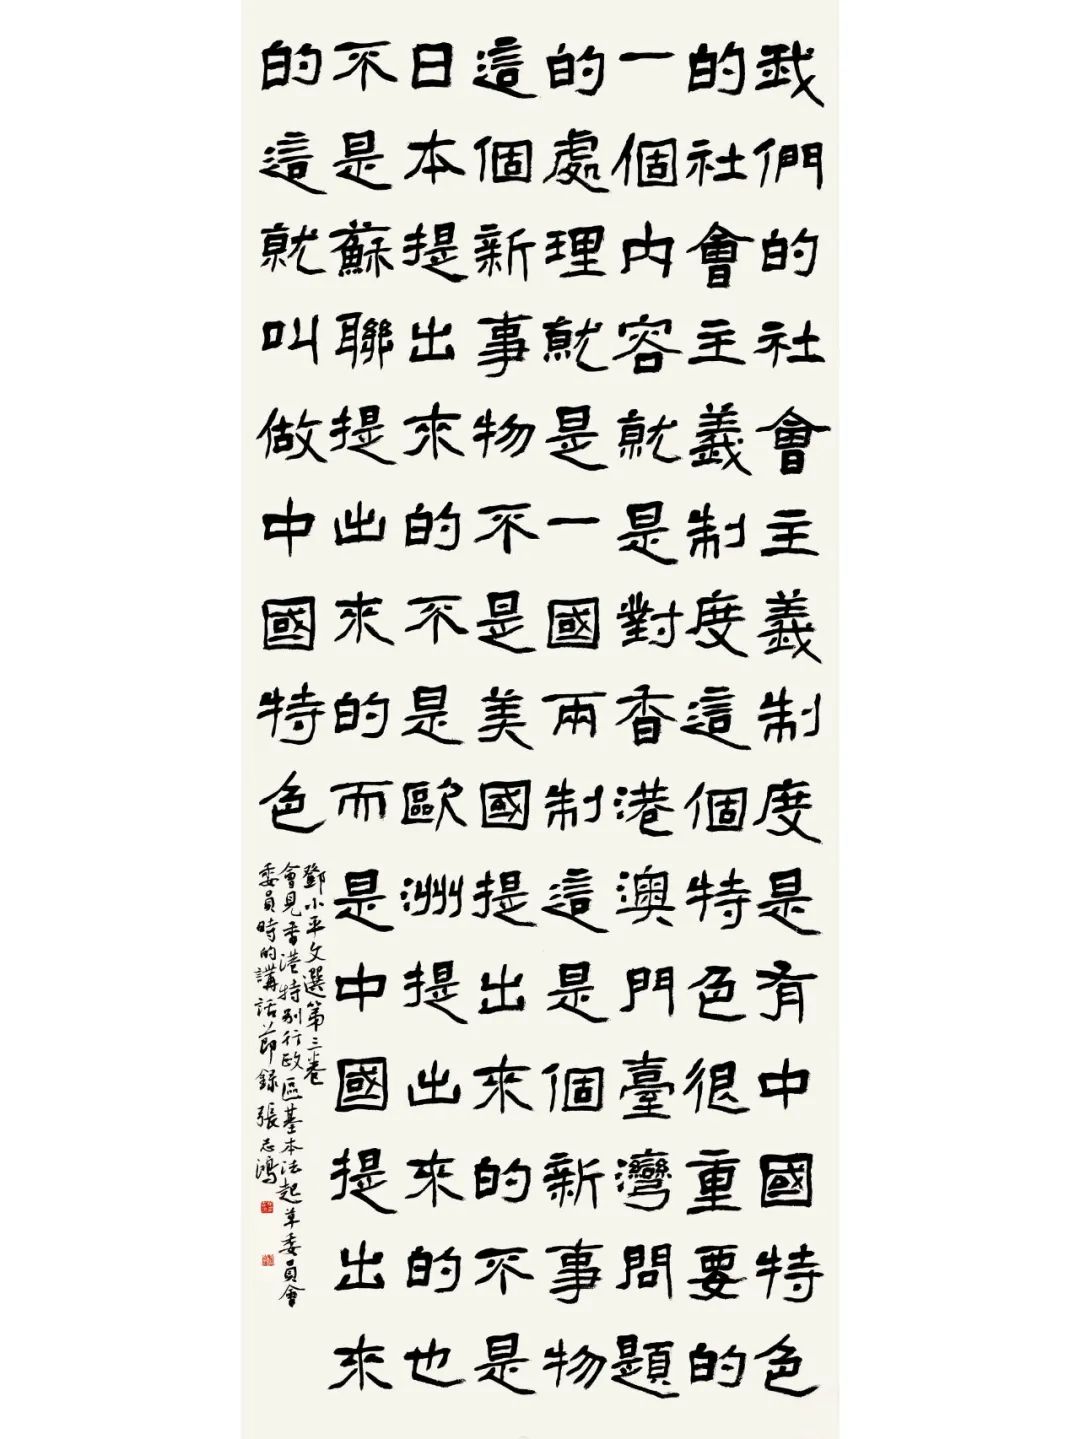 我們的社會主義制度是有中國特色
的社會主義制度這個特色很重要的
一個內容就是對香港澳門臺灣問題
的處理就是一國兩制這是個新事物
這個新事物不是美國提出來的不是
日本提出來的不是歐洲提出來的也
不是蘇聯提出來的而是中國提出來
的這就叫做中國特色
鄧小平文選第三卷
會見香港特別行政區基本法起草委員會
委員時的講話節錄 張志鴻